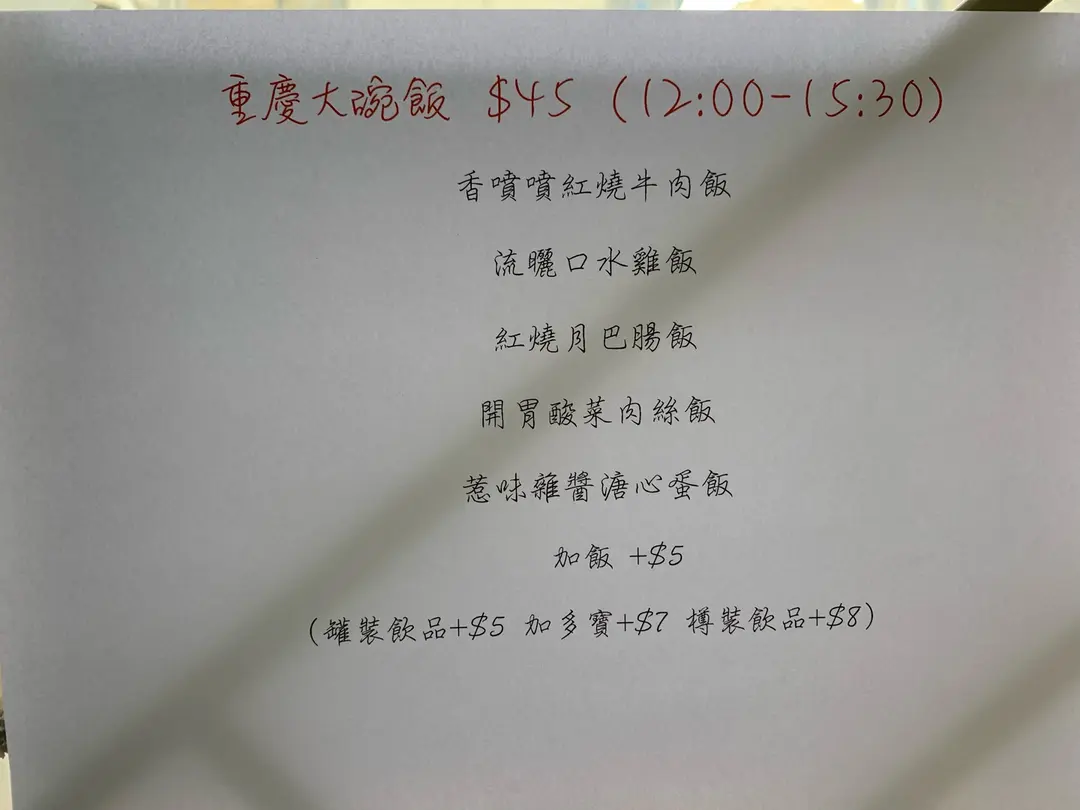 重慶大碗飯 $45 (12:00-15:30)
香噴噴紅燒牛肉飯
流曬口水雞飯
紅燒月巴腸飯
開胃酸菜肉絲飯
惹味雜醬溏心蛋飯
加飯 +$5
(罐裝飲品+$5 加多寶+$7 樽裝飲品+$8)